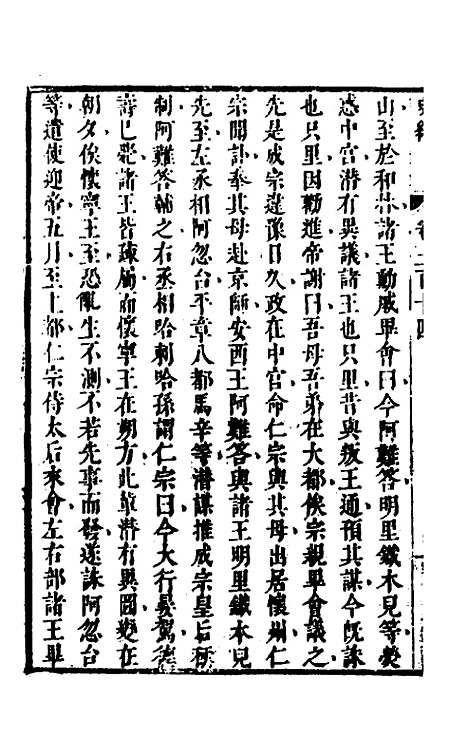 卷二百十四
山至於和林諸王勳戚畢會曰今阿難答明里鐵木兒等熒
惑中宮潛有異議諸王也只里昔與叛王通預其謀今旣誅
也只里因勸進帝謝曰吾母吾弟在大都俟宗親畢會議之
先是成宗違豫日久政在中宮命仁宗與其母出居懷州仁
宗聞訃奉其母赴京師安西王阿難答與諸王明里鐵木兒
先至左丞相阿忽台平章八都馬辛等潛謀推成宗皇后稱
制阿難答輔之右丞相哈剌哈孫謂仁宗曰今大行晏駕德
壽已薨諸王皆疎屬而懷寧王在朔方此輩潛有異圖變在
朝夕俟懷寧王至恐亂生不測不若先事而發遂誅阿忽台
等遣使迎帝五月至上都仁宗侍太后來會左右部諸王畢